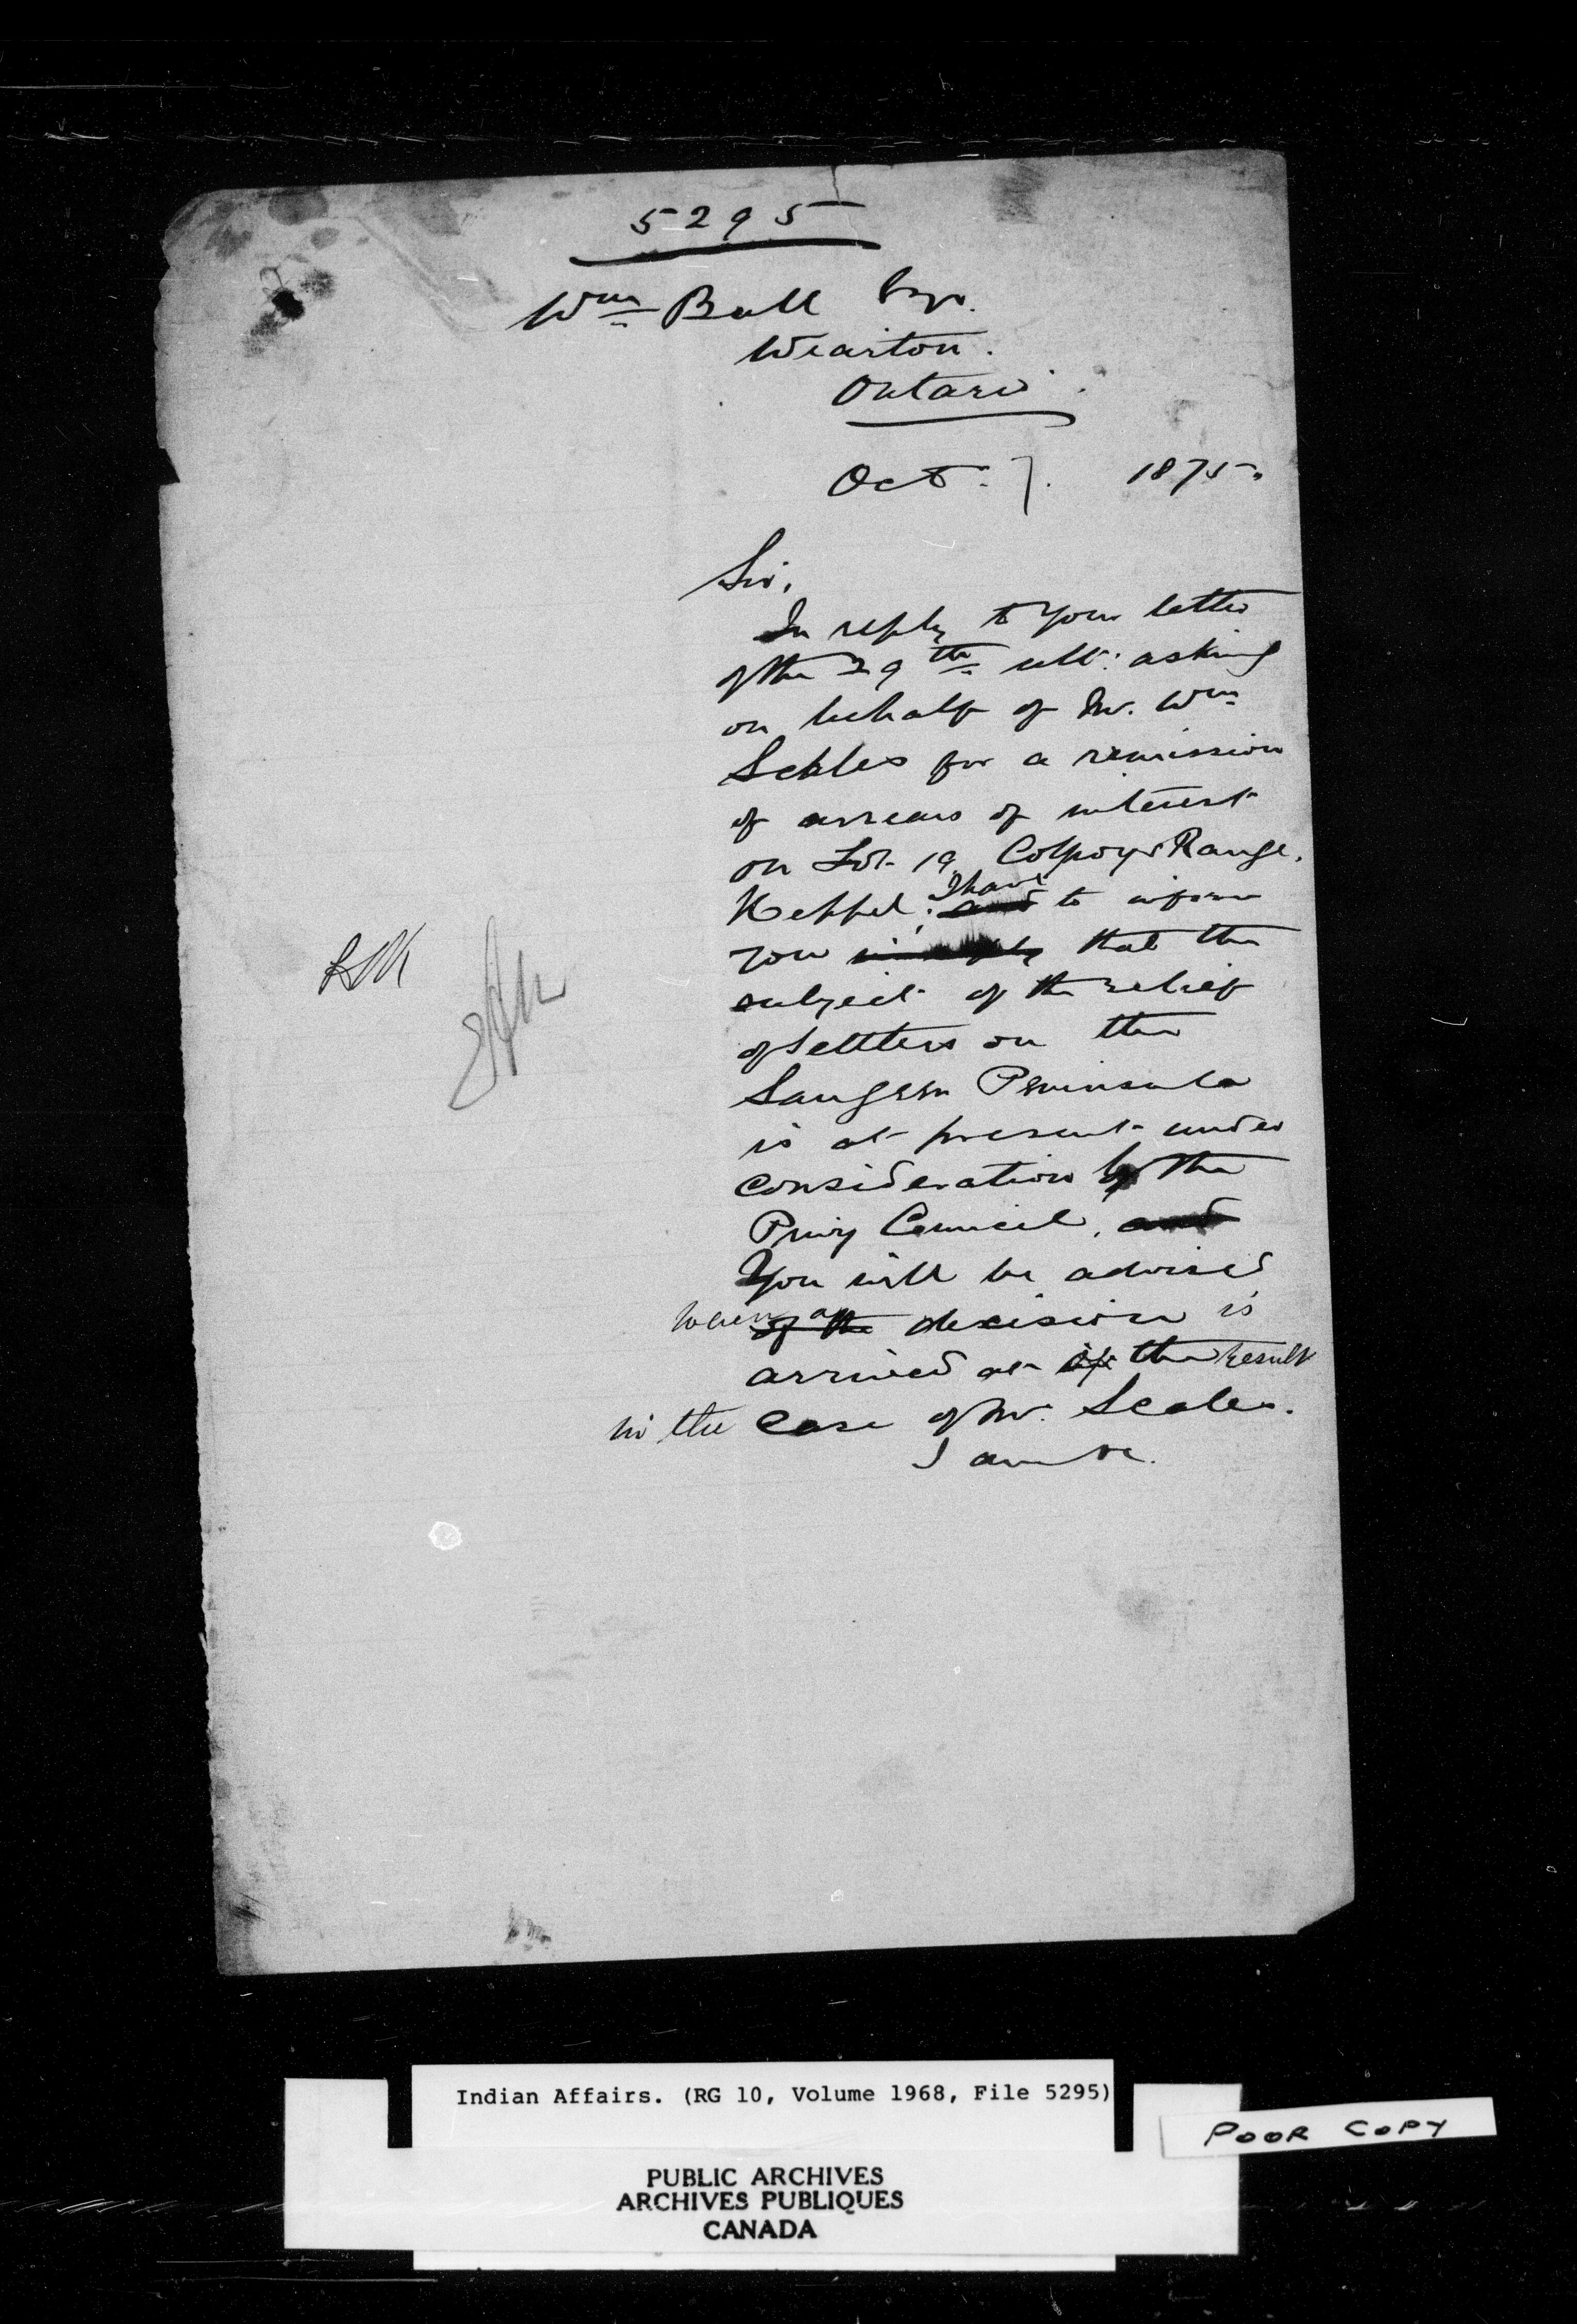 5295
Wm Bull Esqr.
Wiarton.
Ontario.
Oct. 7. 1875.
Sir,
In reply to your letter
of the 29th ult: asking
on behalf of Mr. Wm
Scales for a remission
of arrears of interest
on Lot 19 Colpoys Range.
Keppel: I have and to inform
you that the
subject of the relief
of settlers on the
Saugeen Peninsula
is at present under
consideration by the
Privy Council, and
You will be advised
when a of the decision is
arrived at the result
in the case of Mr. Scales.
I am &c.
Indian Affairs. (RG 10, Volume 1968, File 5295)
POOR COPY
PUBLIC ARCHIVES
ARCHIVES PUBLIQUES
CANADA